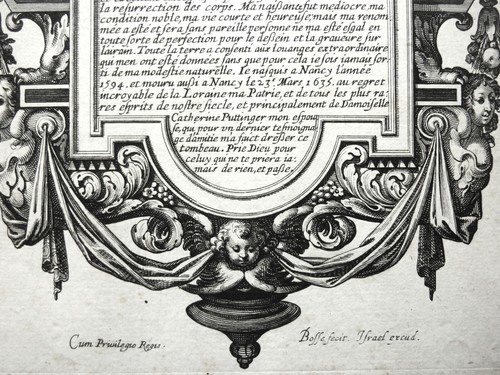 la resurrection des corps. Ma naissance fut mediocre, ma
condition noble, ma vie courte et heureuse; mais ma renom
mée a esté et sera sans pareille personne ne m'a esté esgal en
toute sorte de perfection pour le dessein et la graueure sur
l'airain. Toute la terre a consenti aux louanges extraordinaire
qui men ont esté données sans que pour cela ie sois iamais sor-
ti de ma modestie naturelle. Ie nasquis a Nancy l'année
1594. et mouru aussi a Nancy le 23e. Mars 1635. au regret
incroyable de la Loraine ma Patrie, et de tous les plus ra-
res ésprits de nostre siecle, et principalement de Damoiselle
Catherine Puttinger mon espou
se, qui pour vn dernier tesmoigna
ge d'amitié ma faict dresser ce
tombeau. Prie Dieu pour
celuy qui ne te priera ia:
mais de rien, et passe.
Cum Priuilegio Regis.
Bosse fecit. Israel excud.